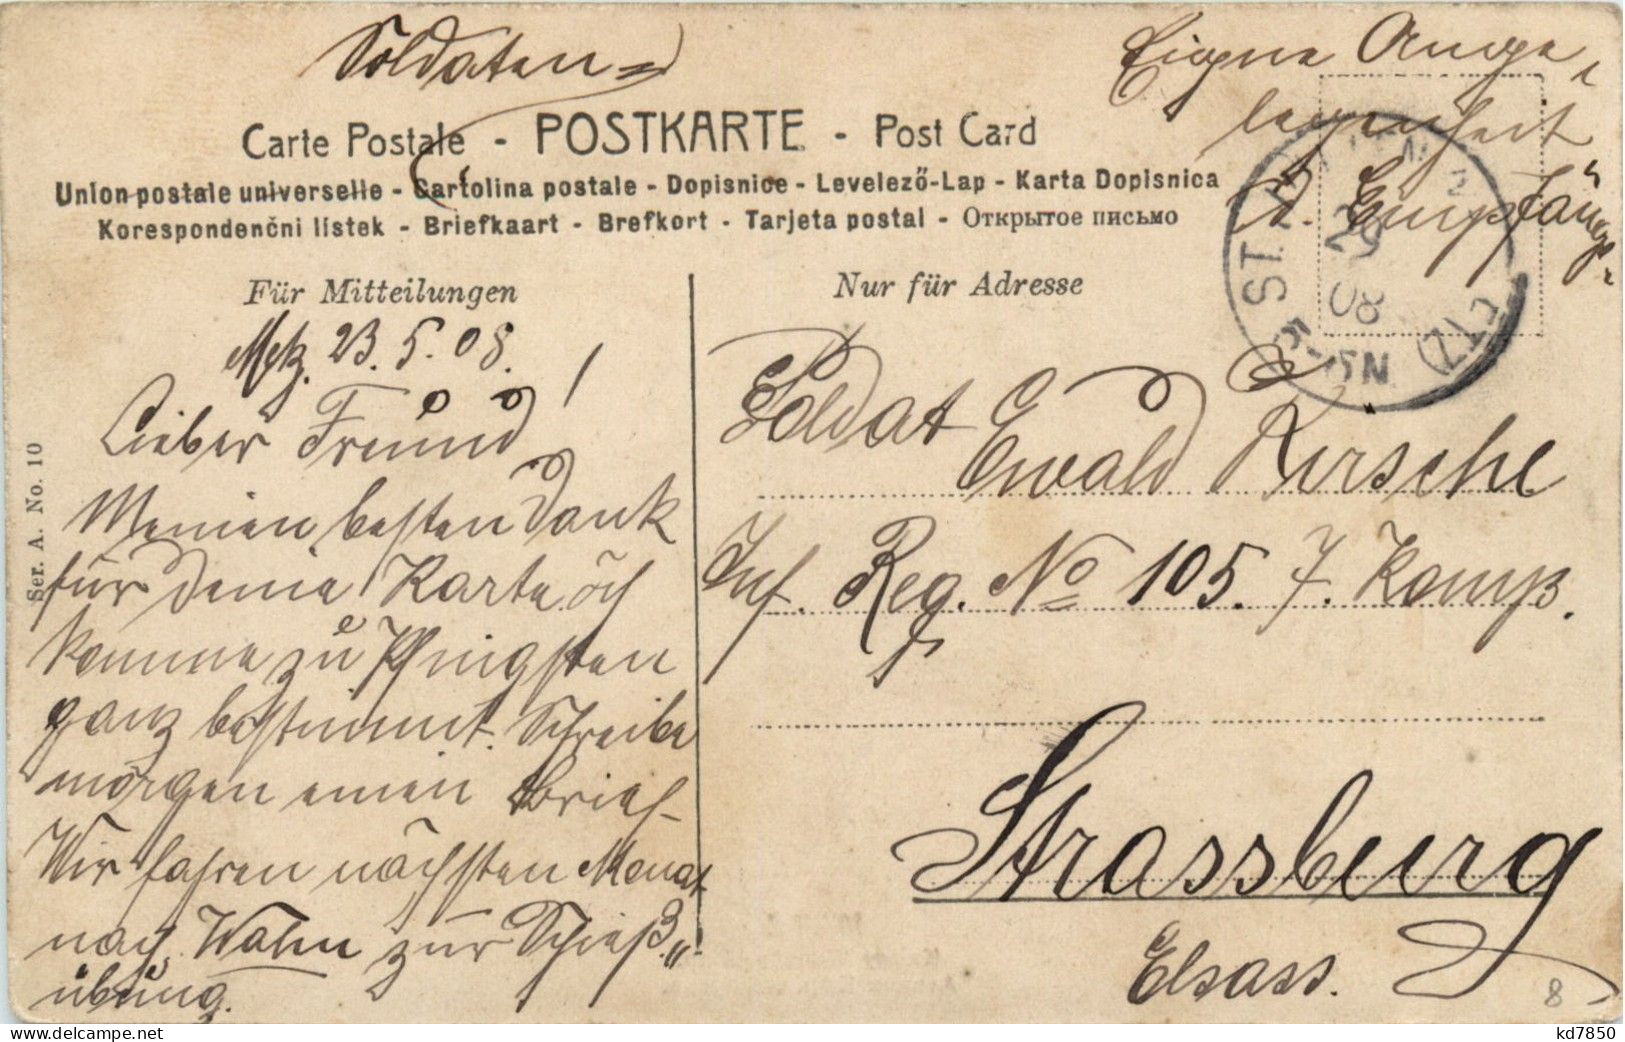 Soldaten=
Eigne Ange-
legenheit
d. Empfängs.
Carte Postale - POSTKARTE - Post Card
Union postale universelle - Cartolina postale - Dopisnice - Levelező-Lap - Karta Dopisnica
Korespondenční lístek - Briefkaart - Brefkort - Tarjeta postal - Открытое письмо
Für Mitteilungen
Nur für Adresse
ST.
23
5
08
(ELS)
Metz. 23. 5. 08.
Lieber Freund!
Meinen besten Dank
für Deine Karte ich
komme zu Pfingsten
ganz bestimmt. Schreibe
morgen einen Brief-
Wir fahren nächsten Monat
nach Wahn zur Schieß„
übung.
Ser. A. No. 10
Soldat Ewald Kirsche
Inf. Reg. No 105. 7. Komp.
Strassburg
Elsass.
8
kd7850